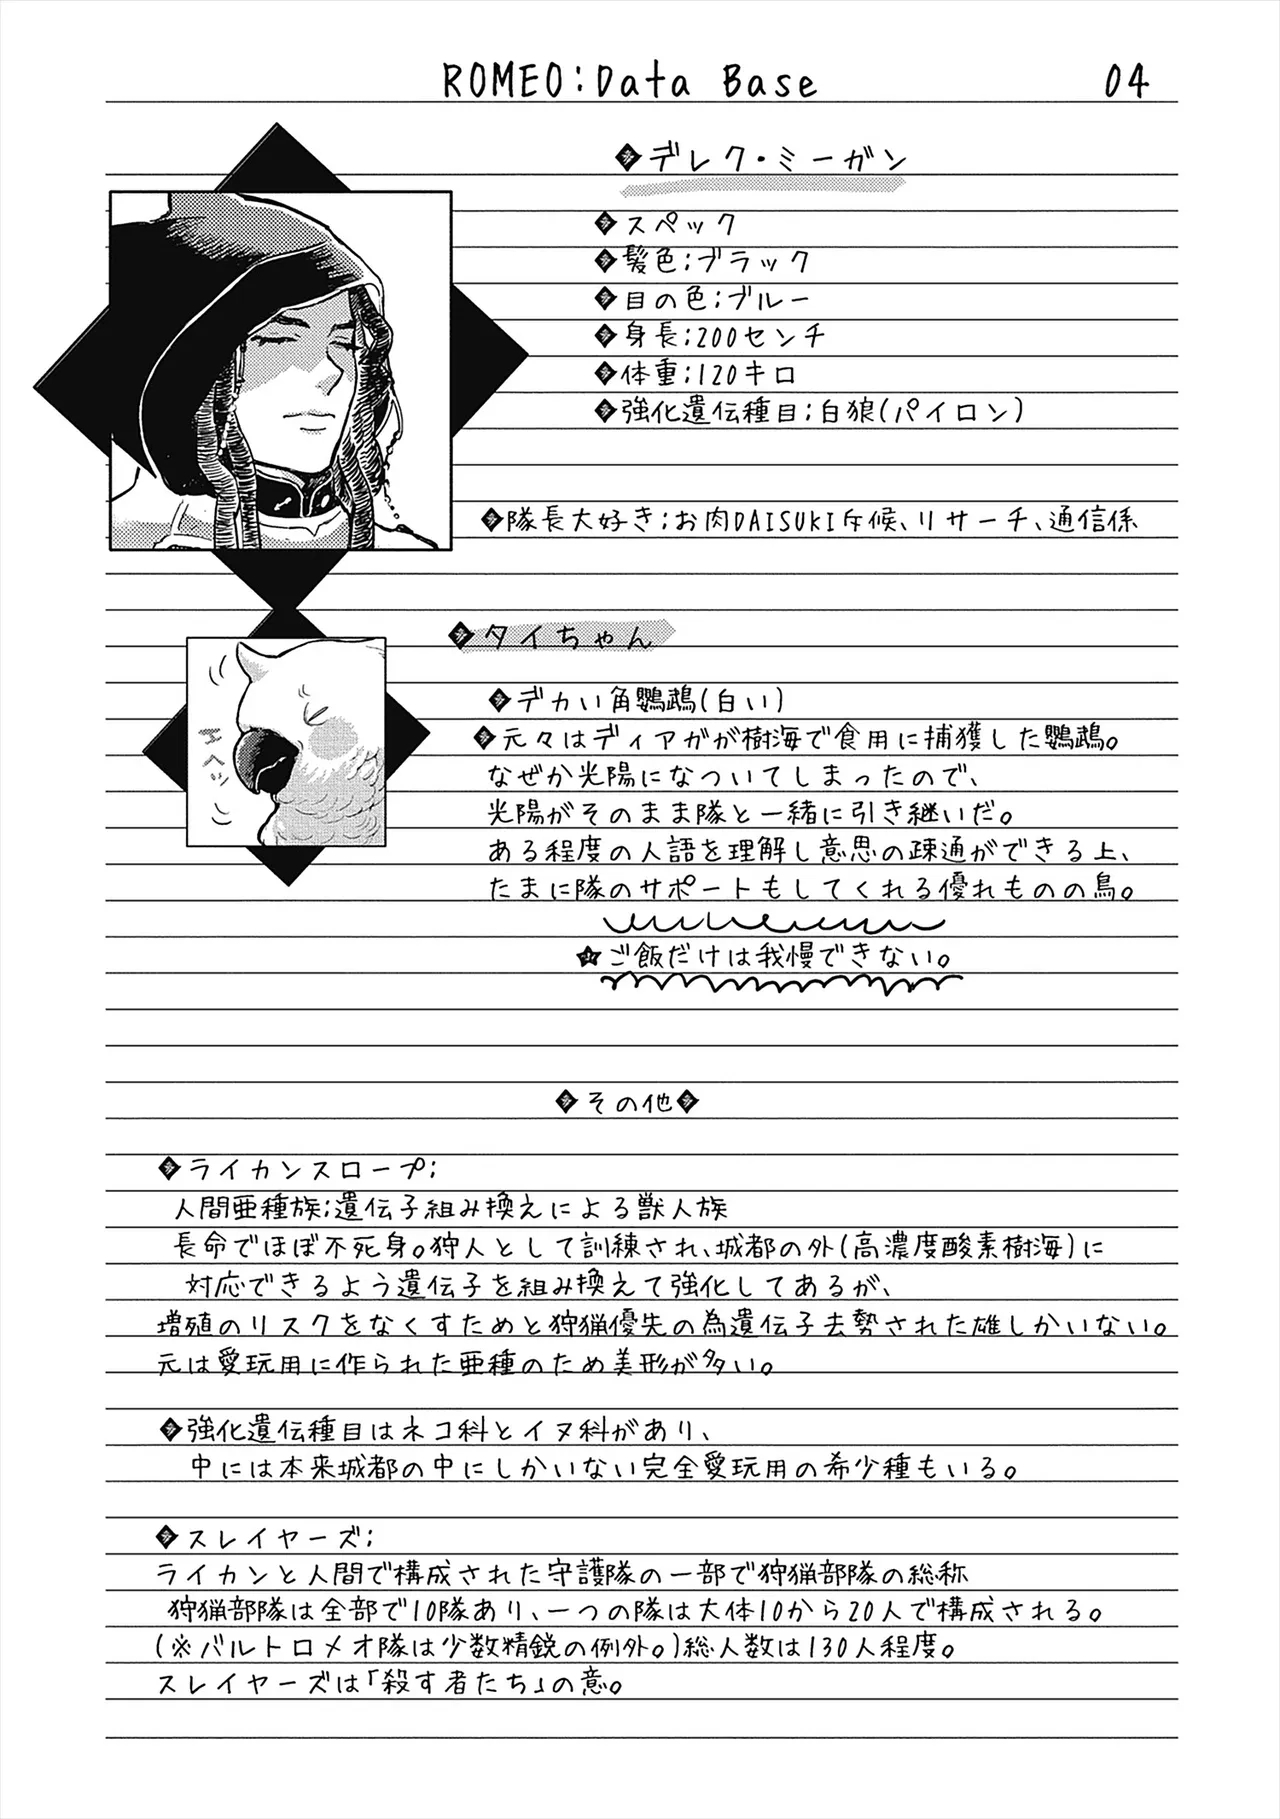 ROMEO:Data Base 04
デレク・ミーガン
スペック
髪色:ブラック
目の色:ブルー
身長:200センチ
体重:120キロ
強化遺伝種目:白狼(パイロン)
隊長大好き:お肉DAISUKI斥候、リサーチ、通信係
エヘッ
タイちゃん
デカい角鸚鵡(白い)
元々はディアガが樹海で食用に捕獲した鸚鵡。
なぜか光陽になついてしまったので、
光陽がそのまま隊と一緒に引き継いだ。
ある程度の人語を理解し意思の疎通ができる上、
たまに隊のサポートもしてくれる優れものの鳥。
ご飯だけは我慢できない。
その他
ライカンスロープ:
人間亜種族:遺伝子組み換えによる獣人族
長命でほぼ不死身。狩人として訓練され、城都の外(高濃度酸素樹海)に
対応できるよう遺伝子を組み換えて強化してあるが、
増殖のリスクをなくすためと狩猟優先の為遺伝子去勢された雄しかいない。
元は愛玩用に作られた亜種のため美形が多い。
強化遺伝種目はネコ科とイヌ科があり、
中には本来城都の中にしかいない完全愛玩用の希少種もいる。
スレイヤーズ:
ライカンと人間で構成された守護隊の一部で狩猟部隊の総称
狩猟部隊は全部で10隊あり、一つの隊は大体10から20人で構成される。
(※バルトロメオ隊は少数精鋭の例外。)総人数は130人程度。
スレイヤーズは「殺す者たち」の意。